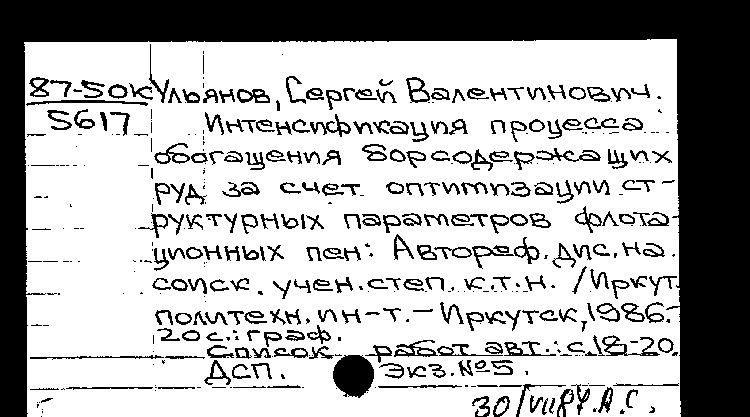 87-50к Ульянов, Сергей Валентинович.
5617 Интенсификация процесса
обогащения борсодержащих
руд за счет оптимизации ст-
руктурных параметров флота-
ционных пен: Автореф. дис. на
соиск. учен. степ. к.т.н. /Иркут.
политехн. ин-т.-Иркутск, 1986.-
20с.: граф.
Список работ авт.: с.18-20.
ДСП. Экз.№5.
30/VII87. А.С.